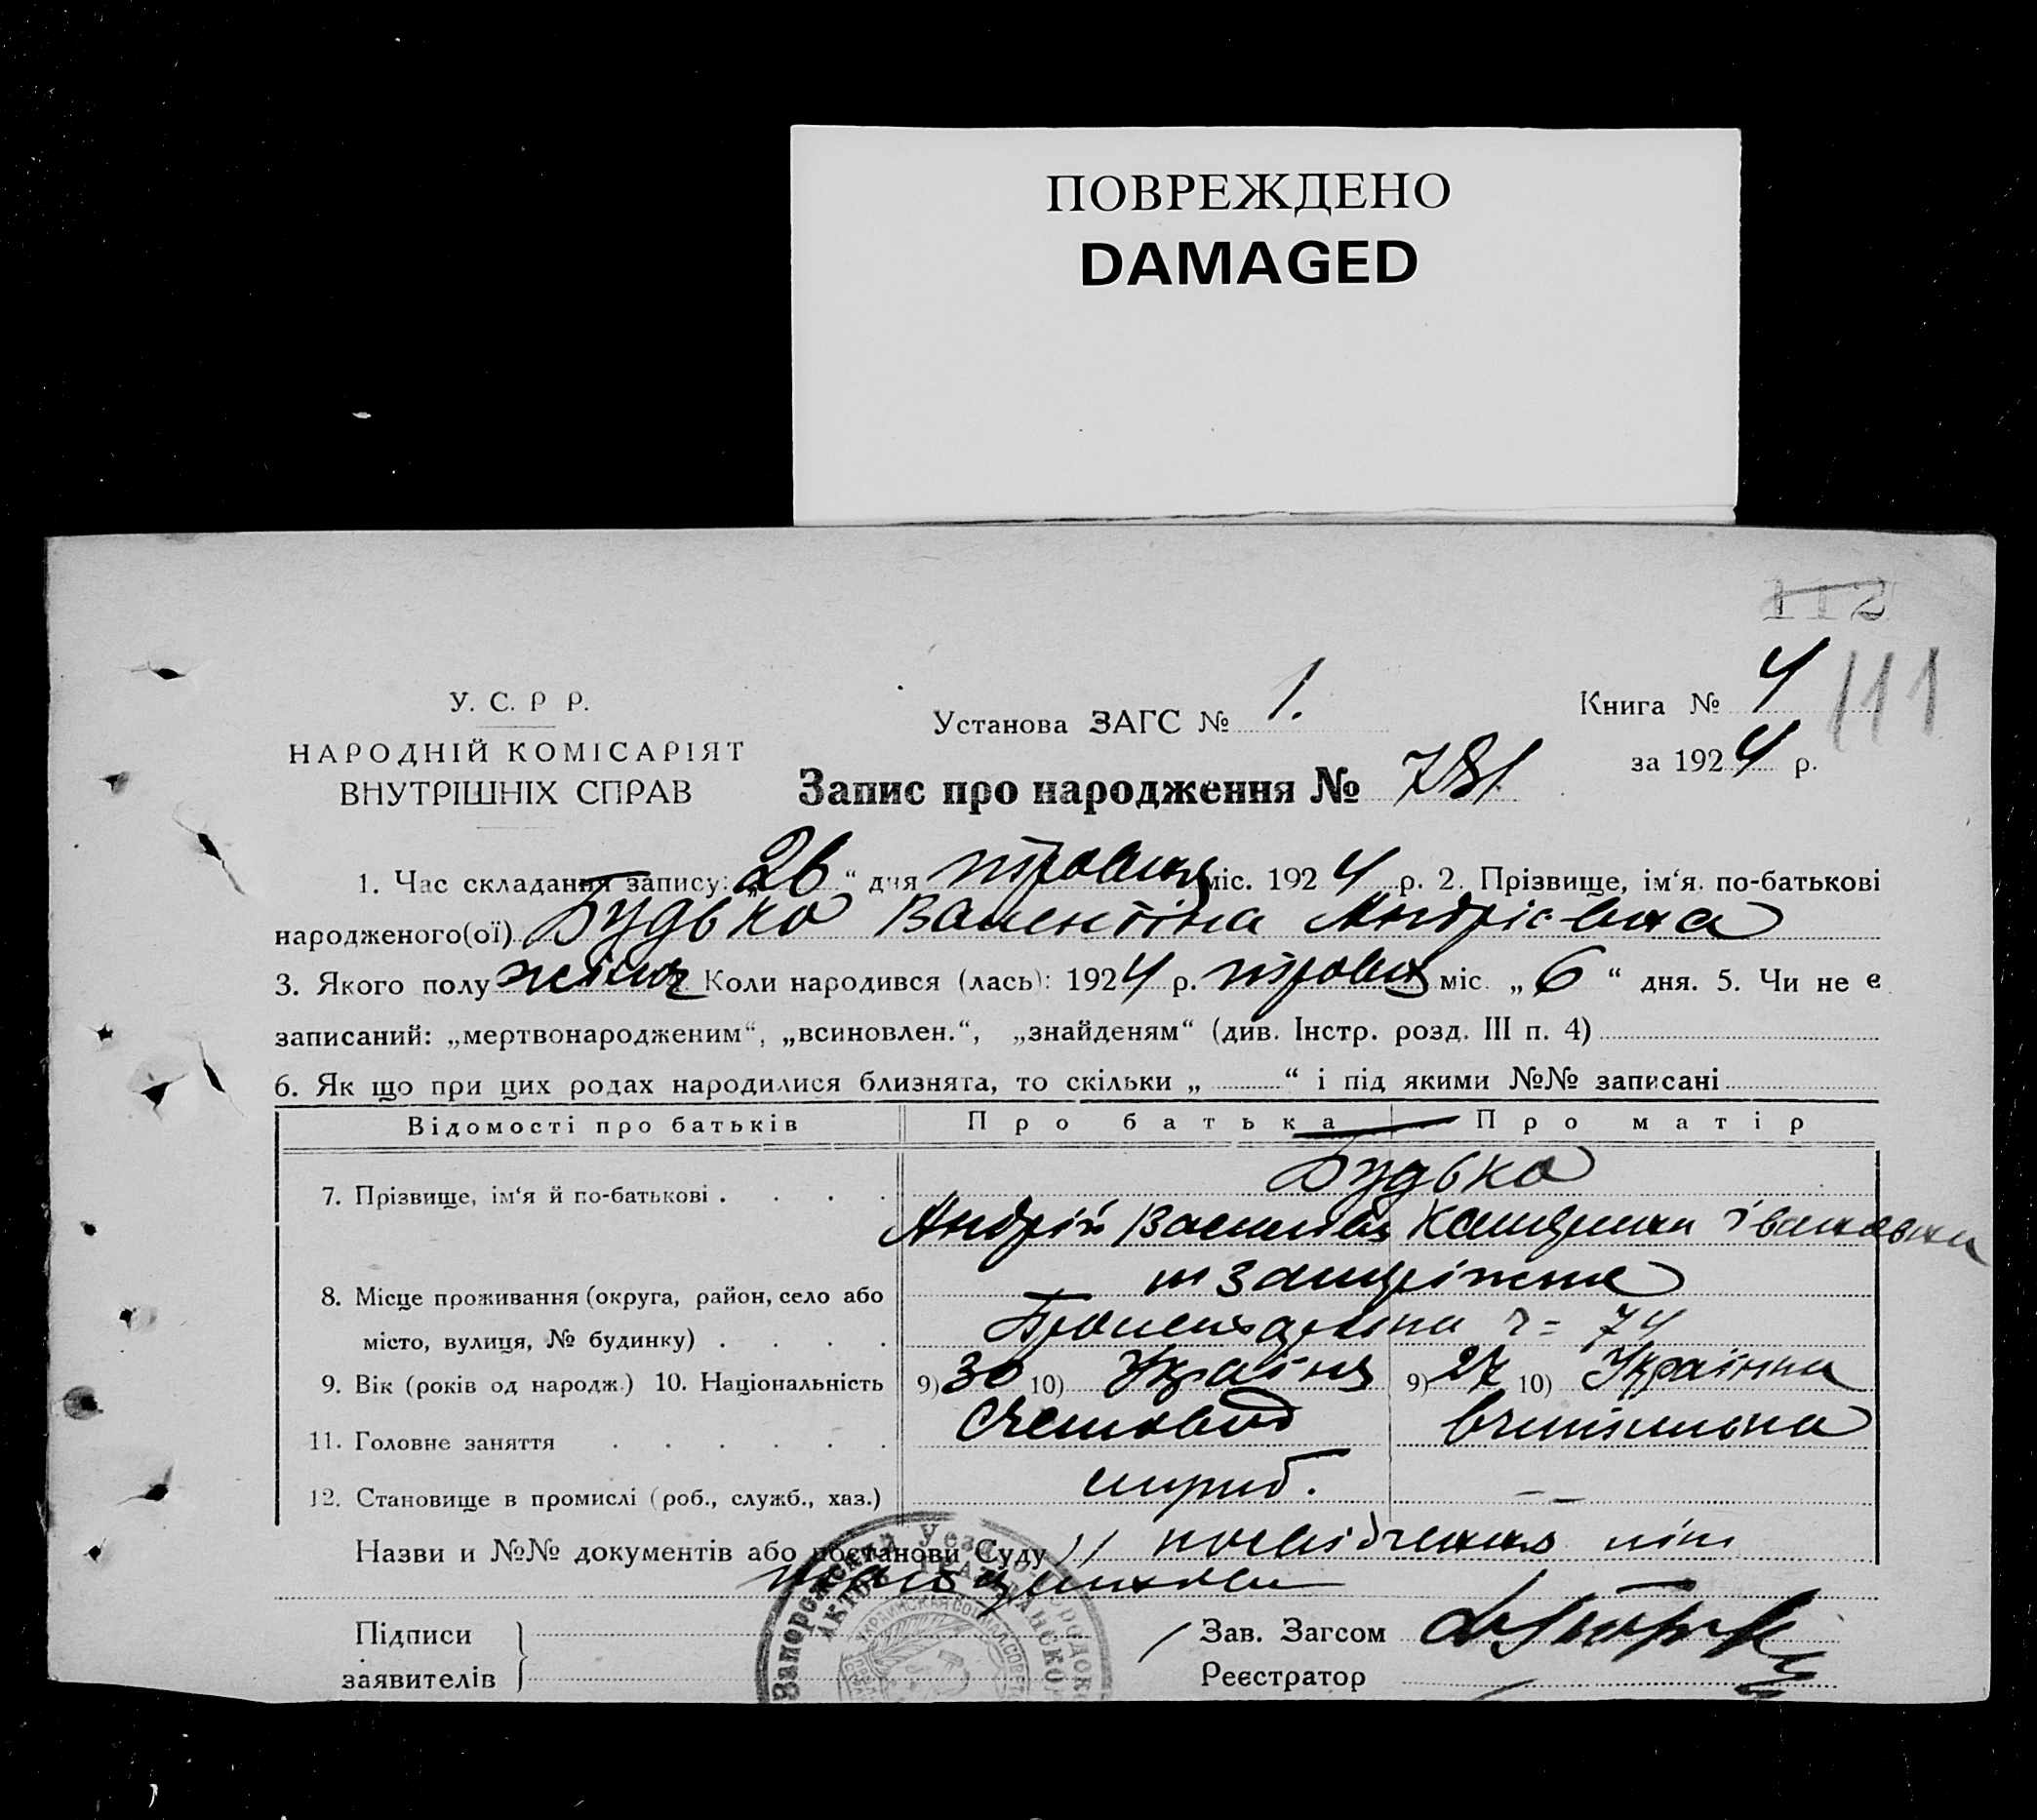 ПОВРЕЖДЕНО
DAMAGED
112
111
У. С. Р Р.
НАРОДНІЙ КОМІСАРІЯТ
ВНУТРІШНІХ СПРАВ
Установа ЗАГС № 1.
Книга № 4
за 1924 р.
Запис про народження № 781
1. Час складання запису: „26“ дня травня міс. 1924 р. 2. Прізвище, ім‘я. по-батькові
народженого(ої) Будько Валентіна Андрієвна
3. Якого полу жіноч Коли народився (лась): 1924 р. травня міс. „6“ дня. 5. Чи не є
записаний: „мертвонародженим“, „всиновлен.“, „знайденям“ (див. Інстр. розд. III п. 4)
6. Як що при цих родах народилися близнята, то скільки „ “ і під якими №№ записані
Відомості про батьків Про батька Про матір
7. Прізвище, ім‘я й по-батькові . . . . Будько
Андрій Василів Івановна
8. Місце проживання (округа, район, село або м Запоріжжє
місто, вулиця, № будинку) . . . . 74
9. Вік (років од народж.) 10. Національність 9) 30 10) Українц 9) 27 10) Українка
11. Головне заняття . . . . . . Счетовод Вчителька
12. Становище в промислі (роб., служб., хаз.) служб. — —
Назви и №№ документів або постанови Суду 1) посвідчення
Підписи
заявителів
Зав. Загсом
Реєстратор